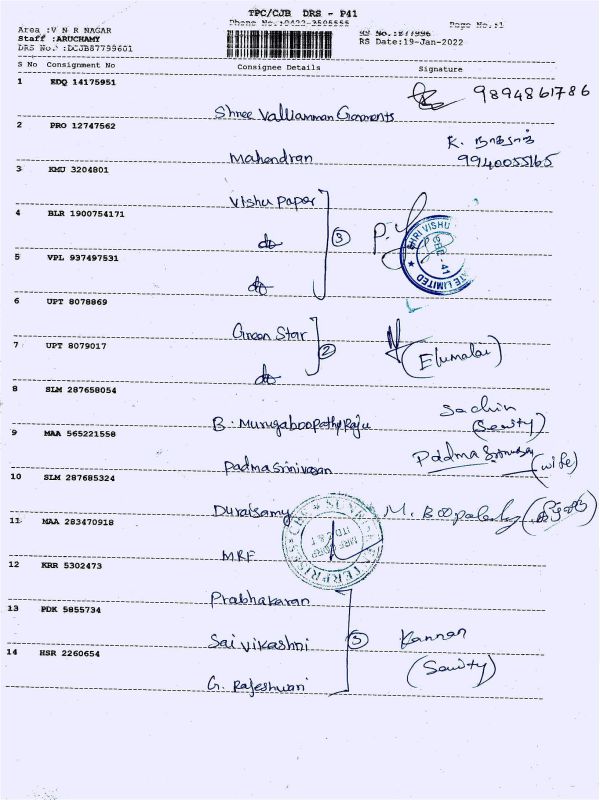 TPC/CJB DRS - P41
Phone No.:0422-3505555
Page No.:1
Area :V N R NAGAR
Staff :ARUCHAMY
DRS No. :DCJB87799601
RS No.:877996
RS Date:19-Jan-2022
S No Consignment No Consignee Details Signature
1 EDQ 14175951 9894861786
Shree Valliamman Garments
2 PRO 12747562 K.
Mahendran 9940055165
3 KMU 3204801
Vishu Paper
4 BLR 1900754171
do 3
SHRI VISHU
5 VPL 937497531
do
6 UPT 8078869
Green Star
7 UPT 8079017 2 (Elumalai)
do
8 SLM 287658054
B. Murugaboopathy Raju Sachin
9 MAA 565221558
Padma Srinivasan Padma (wife)
10 SLM 287685324
Duraisamy
11 MAA 283470918
MRF
12 KRR 5302473
Prabhakaran
13 PDK 5855734
Sai Vikashni Kannan
14 HSR 2260654
G. Rajeshwari